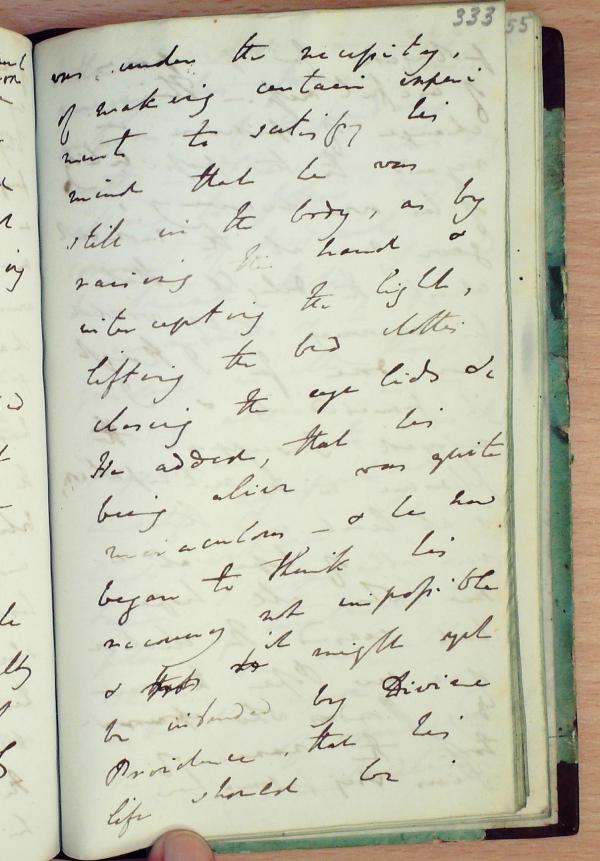 333 55
was under the necessity,
of making certain experi
ments to satisfy his
mind that he was
still in the body, as by
raising his hand &
intercepting the light,
lifting the bed clothes
closing the eye lids &c
He added, that his
being alive was quite
miraculous – & he now
began to think his
recovery not impossible
& it might yet
be intended by Divine
Providence, that his
life should be